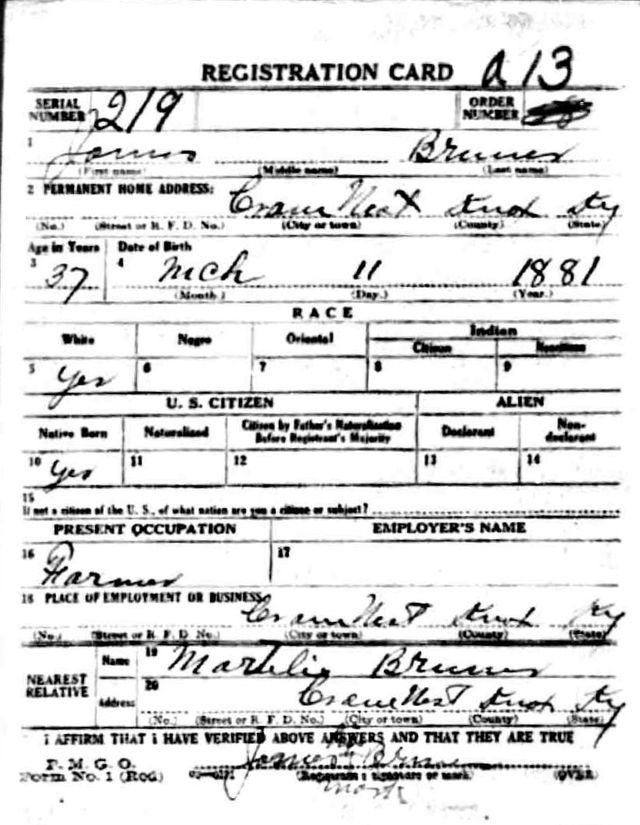 REGISTRATION CARD A 13
SERIAL NUMBER 219 ORDER NUMBER
1 James Bruner
(First name) (Middle name) (Last name)
2 PERMANENT HOME ADDRESS: Crane Nest Knox Ky
(No.) (Street or R. F. D. No.) (City or town) (County) (State)
Age in Years Date of Birth
3 37 4 Mch 11 1881
(Month.) (Day.) (Year.)
RACE
White Negro Oriental Indian
Citizen Noncitizen
5 Yes 6 7 8 9
U. S. CITIZEN ALIEN
Native Born Naturalized Citizen by Father's Naturalization Before Registrant's Majority Declarant Non-declarant
10 Yes 11 12 13 14
15
If not a citizen of the U. S., of what nation are you a citizen or subject?
PRESENT OCCUPATION EMPLOYER'S NAME
16 Farmer 17
18 PLACE OF EMPLOYMENT OR BUSINESS: Crane Nest Knox Ky
(No.) (Street or R. F. D. No.) (City or town) (County) (State)
NEAREST RELATIVE Name 19 Bruner
Address 20 Crane Nest Knox Ky
(No.) (Street or R. F. D. No.) (City or town) (County) (State)
I AFFIRM THAT I HAVE VERIFIED ABOVE ANSWERS AND THAT THEY ARE TRUE
P. M. G. O.
Form No. 1 (Red) James Bruner
(Registrant's signature or mark) (OVER)
mark